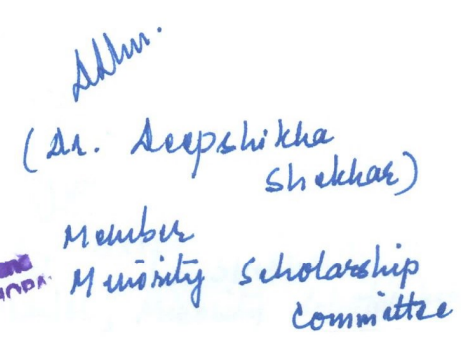 (Dr. Deepshikha
Shekhar)
Member
Minority Scholarship
Committee